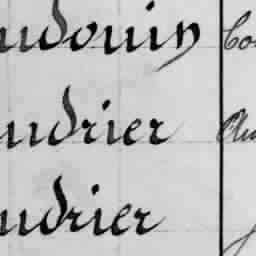 udouin Co
udrier
udrier